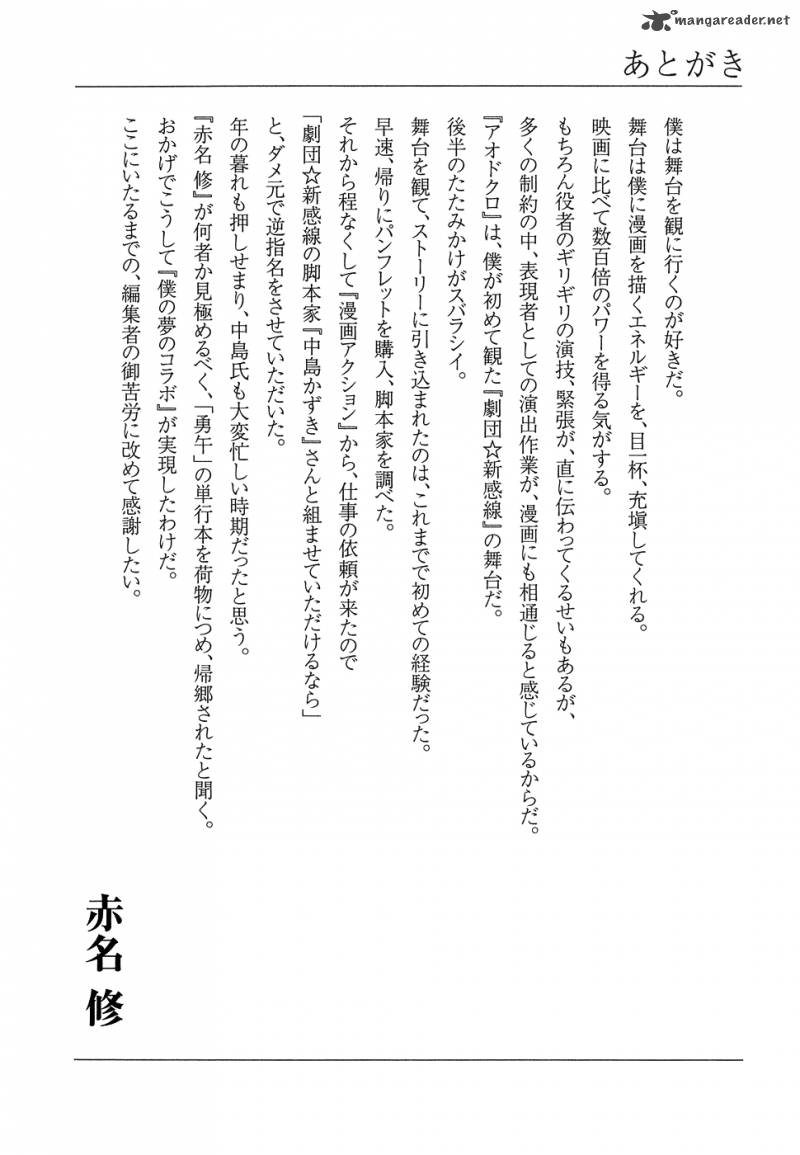 mangareader.net
あとがき
僕は舞台を観に行くのが好きだ。
舞台は僕に漫画を描くエネルギーを、目一杯、充塡してくれる。
映画に比べて数百倍のパワーを得る気がする。
もちろん役者のギリギリの演技、緊張が、直に伝わってくるせいもあるが、
多くの制約の中、表現者としての演出作業が、漫画にも相通じると感じているからだ。
『アオドクロ』は、僕が初めて観た『劇団☆新感線』の舞台だ。
後半のたたみかけがスバラシイ。
舞台を観て、ストーリーに引き込まれたのは、これまでで初めての経験だった。
早速、帰りにパンフレットを購入、脚本家を調べた。
それから程なくして『漫画アクション』から、仕事の依頼が来たので
「劇団☆新感線の脚本家『中島かずき』さんと組ませていただけるなら」
と、ダメ元で逆指名をさせていただいた。
年の暮れも押しせまり、中島氏も大変忙しい時期だったと思う。
『赤名 修』が何者か見極めるべく、「勇午」の単行本を荷物につめ、帰郷されたと聞く。
おかげでこうして『僕の夢のコラボ』が実現したわけだ。
ここにいたるまでの、編集者の御苦労に改めて感謝したい。
赤名 修